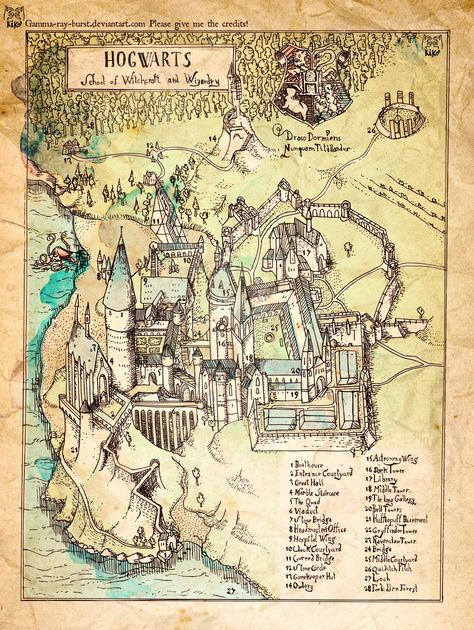 KiKé
Gamma-ray-burst.deviantart.com Please give me the credits!
KiKé
HOGWARTS
School of Witchcraft and Wizardry
Draco Dormiens
Nunquam Titillandus
14
26
13
28
12
16
18
20
19
17
25
21
27
1 Boathouse
2 Entrance Courtyard
3 Great Hall
4 Marble Staircase
5 The Quad
6 Viaduct
7 Stone Bridge
8 Headmaster Office
9 Hospital Wing
10 Clock Courtyard
11 Covered Bridge
12 Stone Circle
13 Gamekeeper Hut
14 Owlery
15 Astronomy Wing
16 Dark Tower
17 Library
18 Middle Tower
19 The long Gallery
20 Bell Towers
21 Hufflepuff Basement
22 Gryffindor Tower
23 Ravenclaw Tower
24 Bridge
25 Middle Courtyard
26 Quidditch Pitch
27 Loch
28 Forbidden Forest